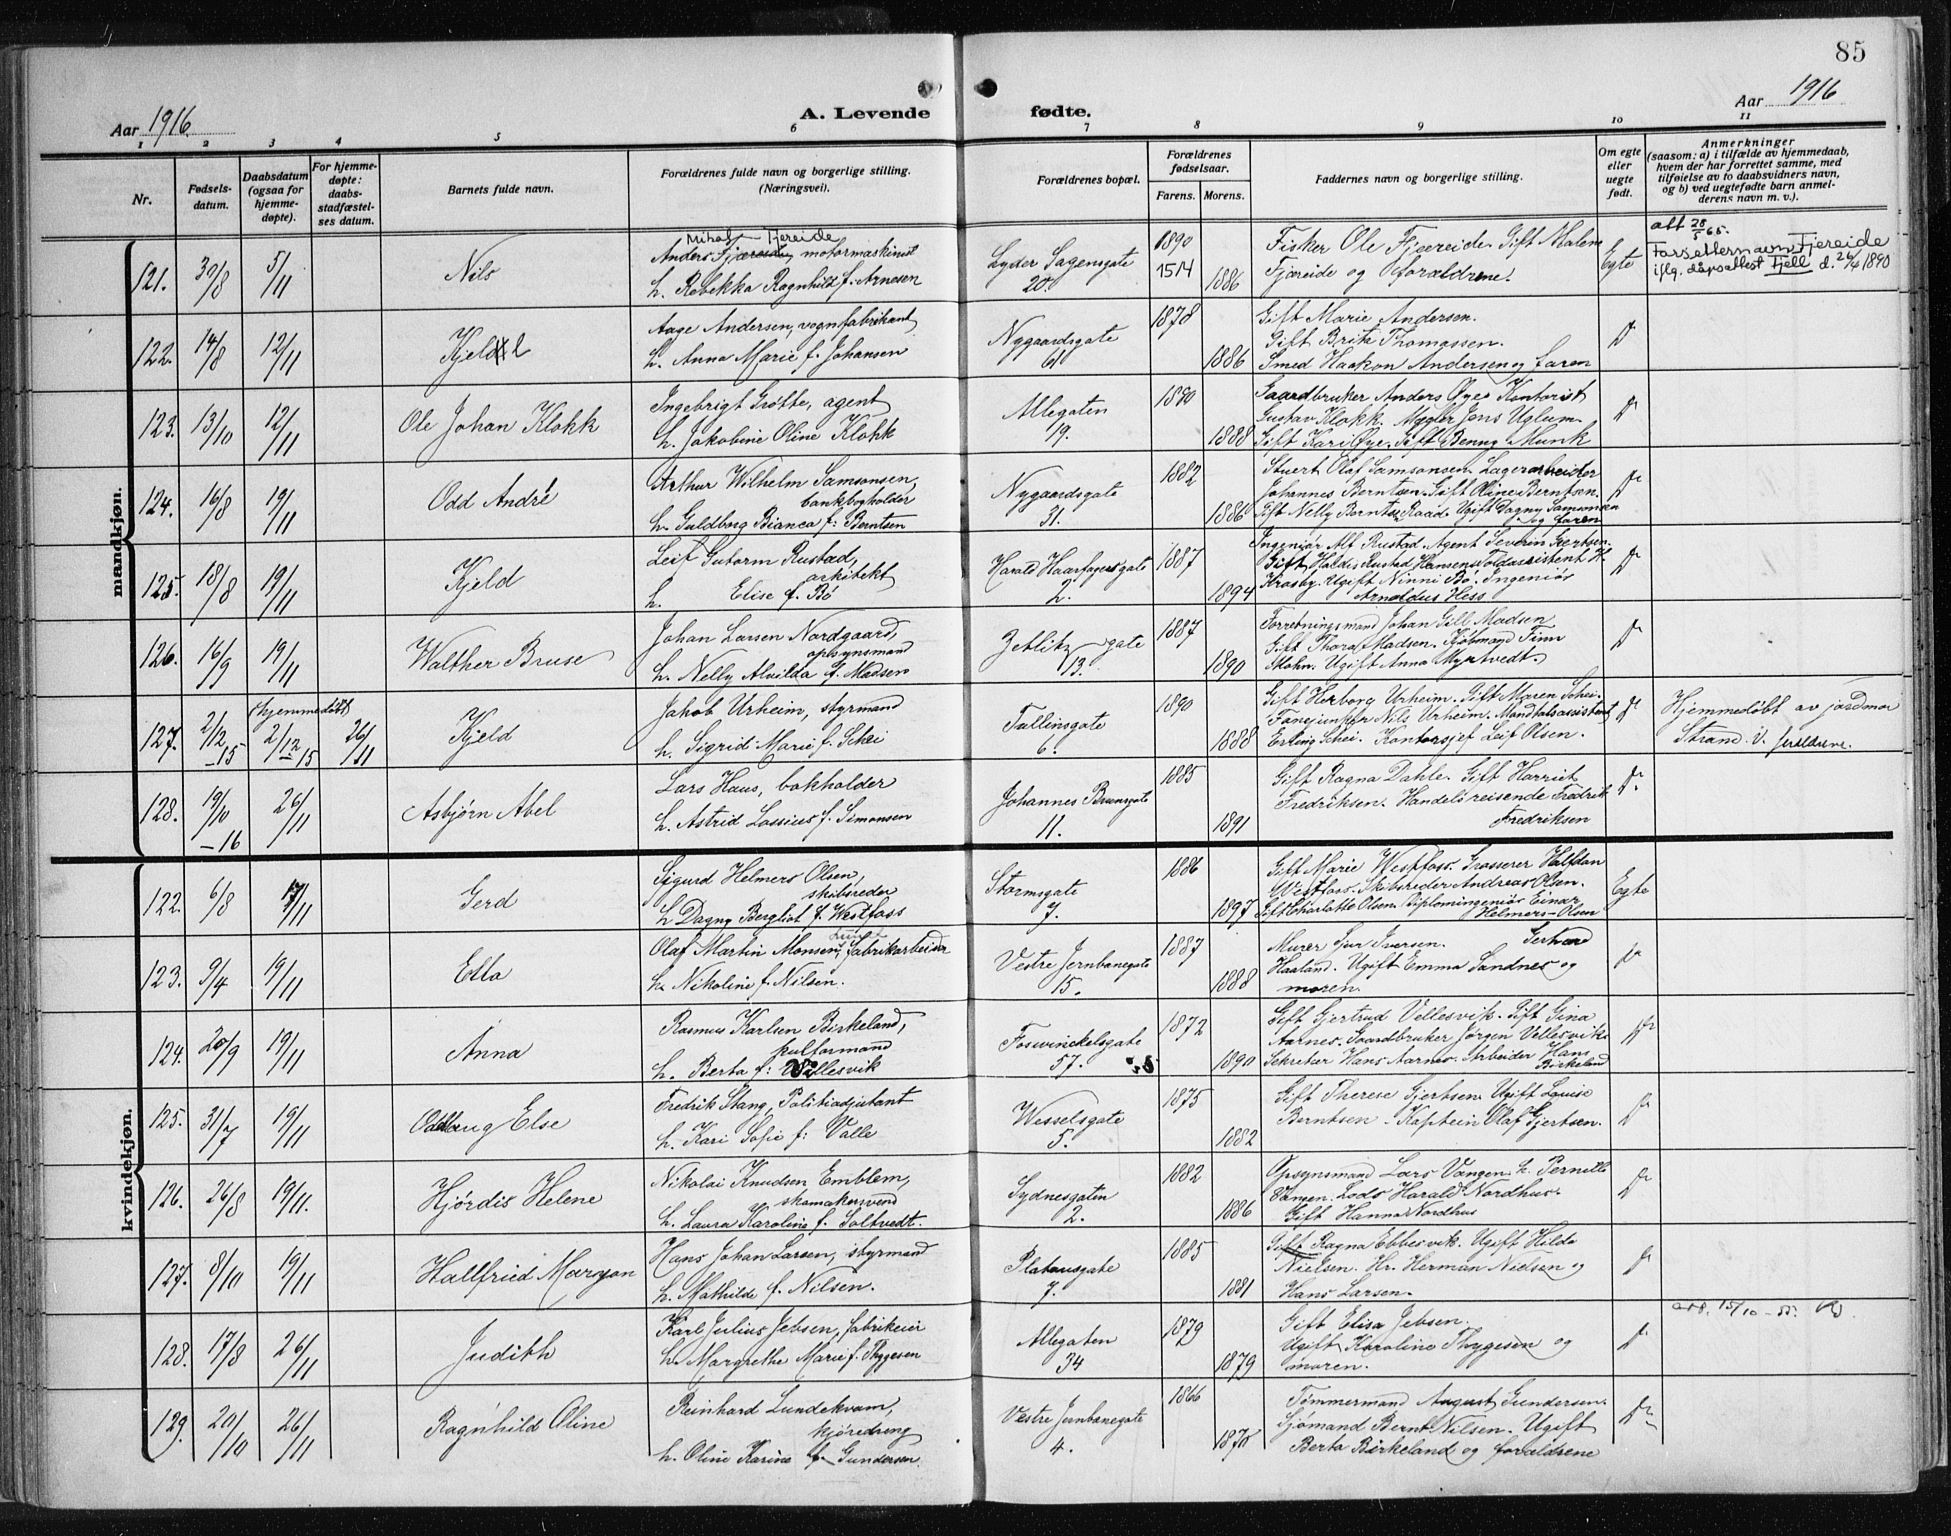 85
Aar 1916.
A. Levende fødte.
Aar 1916
1 2 3 4 5 6 7 8 9 10 11
Nr.
Fødsels-
datum.
Daabsdatum
(ogsaa for
hjemme-
døpte).
For hjemme-
døpte:
daabs-
stadfæstel-
ses datum.
Barnets fulde navn.
Forældrenes fulde navn og borgerlige stilling.
(Næringsvei).
Forældrenes bopæl.
Forældrenes
fødselsaar.
Farens. Morens.
Faddernes navn og borgerlige stilling.
Om egte
eller
uegte
født.
Anmerkninger
(saasom: a) i tilfælde av hjemmedaab,
hvem der har forrettet samme, med
tilføielse av to daabsvidners navn,
og b) ved uegtefødte barn anmel-
derens navn m. v.).
mandkjøn.
121. 30/8 5/11 Nils
Mikal Fjereide
Anders Fjæreide, motormaskinist
h. Rebekka Ragnhild f. Arnesen
Lyder Sagensgate
20.
1890
15/4
1886
Fisker Ole Fjæreide. Gift Malene
Fjæreide og forældrene.
Egte
att 28/5 65.
Farsetternavn Fjereide
iflg. dåpsattest Fjell d. 26/4 1890
122. 14/8 12/11 Kjell
Aage Andersen, vognfabrikant
h. Anna Marie f. Johansen
Nygaardsgate
61
1878 1886
Gift Marie Andersen.
Gift Brita Thomassen.
Smed Haakon Andersen og faren
123. 13/10 12/11 Ole Johan Klokk
Ingebrigt Grøtte, agent
h. Jakobine Oline Klokk
Allegaten
19.
1880 1888
Gaardbruker Anders Øye. Kontorist
Gustav Klokk. Mægler Jens Uglum.
Gift Kari Øye. Gift Benny Munk
124. 16/8 19/11 Odd André
Arthur Wilhelm Samsonsen,
bankbogholder
h. Guldborg Bianca f: Berntsen
Nygaardsgate
31.
1882 1886
Stuert Olaf Samsonsen. Lagerarbeider
Johannes Berntsen. Gift Oline Berntsen.
Gift Nelly Berntsen Raad. Ugift Dagny Samsonsen
og faren
125. 18/8 19/11 Kjeld
Leif Guttorm Rustad,
arkitekt
h. Elise f. Bø
Harald Haarfagersgate
2.
1887 1894
Ingeniør Alf Rustad. Agent Severin Gertsen.
Gift Haldis Rustad Hansen. Toldassistent H.
Krasby. Ugift Ninni Bø. Ingeniør
Arnoldus Hess
126. 16/9 19/11 Walther Bruse
Johan Larsen Nordgaard,
opsynsmand
h. Nelly Alvilda f. Madsen
Zetlitz gate
13.
1887 1890
Forretningsmand Johan Gill Madsen
Gift Thora Madsen. Kjøbmand Finn
Mohn. Ugift Anna Myrtvedt.
127. 2/12 -15 (hjemmedøbt) 2/12 15 26/11 Kjeld
Jakob Urheim, styrmand
h. Sigrid Marie f. Schei
Tullinsgate
6.
1890 1888
Gift Herborg Urheim. Gift Maren Schei.
Fanejunker Nils Urheim. Mandtalsassistent
Erling Schei. Kontorsjef Leif Olsen.
Hjemmedøbt av jordmor
Strand. V. foreldrene.
128. 19/10 -16 26/11 Asbjørn Abel
Lars Haus, bokholder
h. Astrid Lossius f. Simonsen
Johannes Brunsgate
11.
1885 1891
Gift Ragna Dahle. Gift Harriet
Fredriksen. Handelsreisende Fredrik
Fredriksen
kvindekjøn.
122. 6/8 17/11 Gerd
Sigurd Helmers Olsen,
skibsreder
h. Dagny Bergliot f. Westfoss
Stormsgate
7.
1886 1897
Gift Marie Westfoss. Grosserer Halfdan
Westfoss. Skibsreder Andreas Olsen.
Gift Charlotte Olsen. Diplomingeniør Einar
Helmers-Olsen
Egte
123. 9/4 19/11 Ella
Olaf Martin Monsen, fabrikarbeider
h. Nikoline f. Nilsen.
Vestre Jernbanegate
15.
1887 1888
Murer Sjur Iversen. Gertrud
Haaland. Ugift Emma Sandnes og
moren.
124. 20/9 19/11 Anna
Rasmus Karlsen Birkeland,
kulformand
h. Berta f: Vellesvik
Fosvinckelsgate
57.
1872 1890
Gift Gjertrud Vellesvik. Gift Gina
Aarnes. Gaardbruker Jørgen Vellesvik.
Sekretær Hans Aarnes. Arbeider Hans
Birkeland
125. 31/7 19/11 Oddlaug Else
Fredrik Stang, Politiadjutant
h. Kari Sofie f: Valle
Wesselsgate
5.
1875 1882
Gift Therese Gjertsen. Ugift Louise
Berntsen. Kaptein Olaf Gjertsen.
126. 26/8 19/11. Hjørdis Helene
Nikolai Knudsen Emblem,
skomakersvend
h. Laura Karoline f. Soltvedt.
Sydnesgaten
2.
1882 1886
Opsynsmand Lars Vangen. h. Pernille
Vangen. Lods Harald Nordhus.
Gift Hanna Nordhus
127. 8/10 19/11 Hallfried Maryon
Hans Johan Larsen, styrmand
h. Mathilde f. Nilsen.
Platousgate
7.
1885 1881
Gift Ragna Ebbesvik. Ugift Hilda
Nielsen. Hr. Herman Nielsen og
Hans Larsen.
128. 17/8 26/11 Judith
Karl Julius Jebsen, fabrikeier
h. Margrethe Marie f. Thygesen
Allegaten
34
1879 1879
Gift Elisa Jebsen.
Ugift Karoline Thygesen og
moren.
15/10-55.
129. 20/10 26/11 Ragnhild Oline
Reinhard Lundekvam,
kjøredreng
h. Oline Karine f. Gundersen.
Vestre Jernbanegate
4.
1866
Tømmermand August Gundersen.
Sjømand Bernt Nilsen. Ugift
Berta Birkeland og forældrene